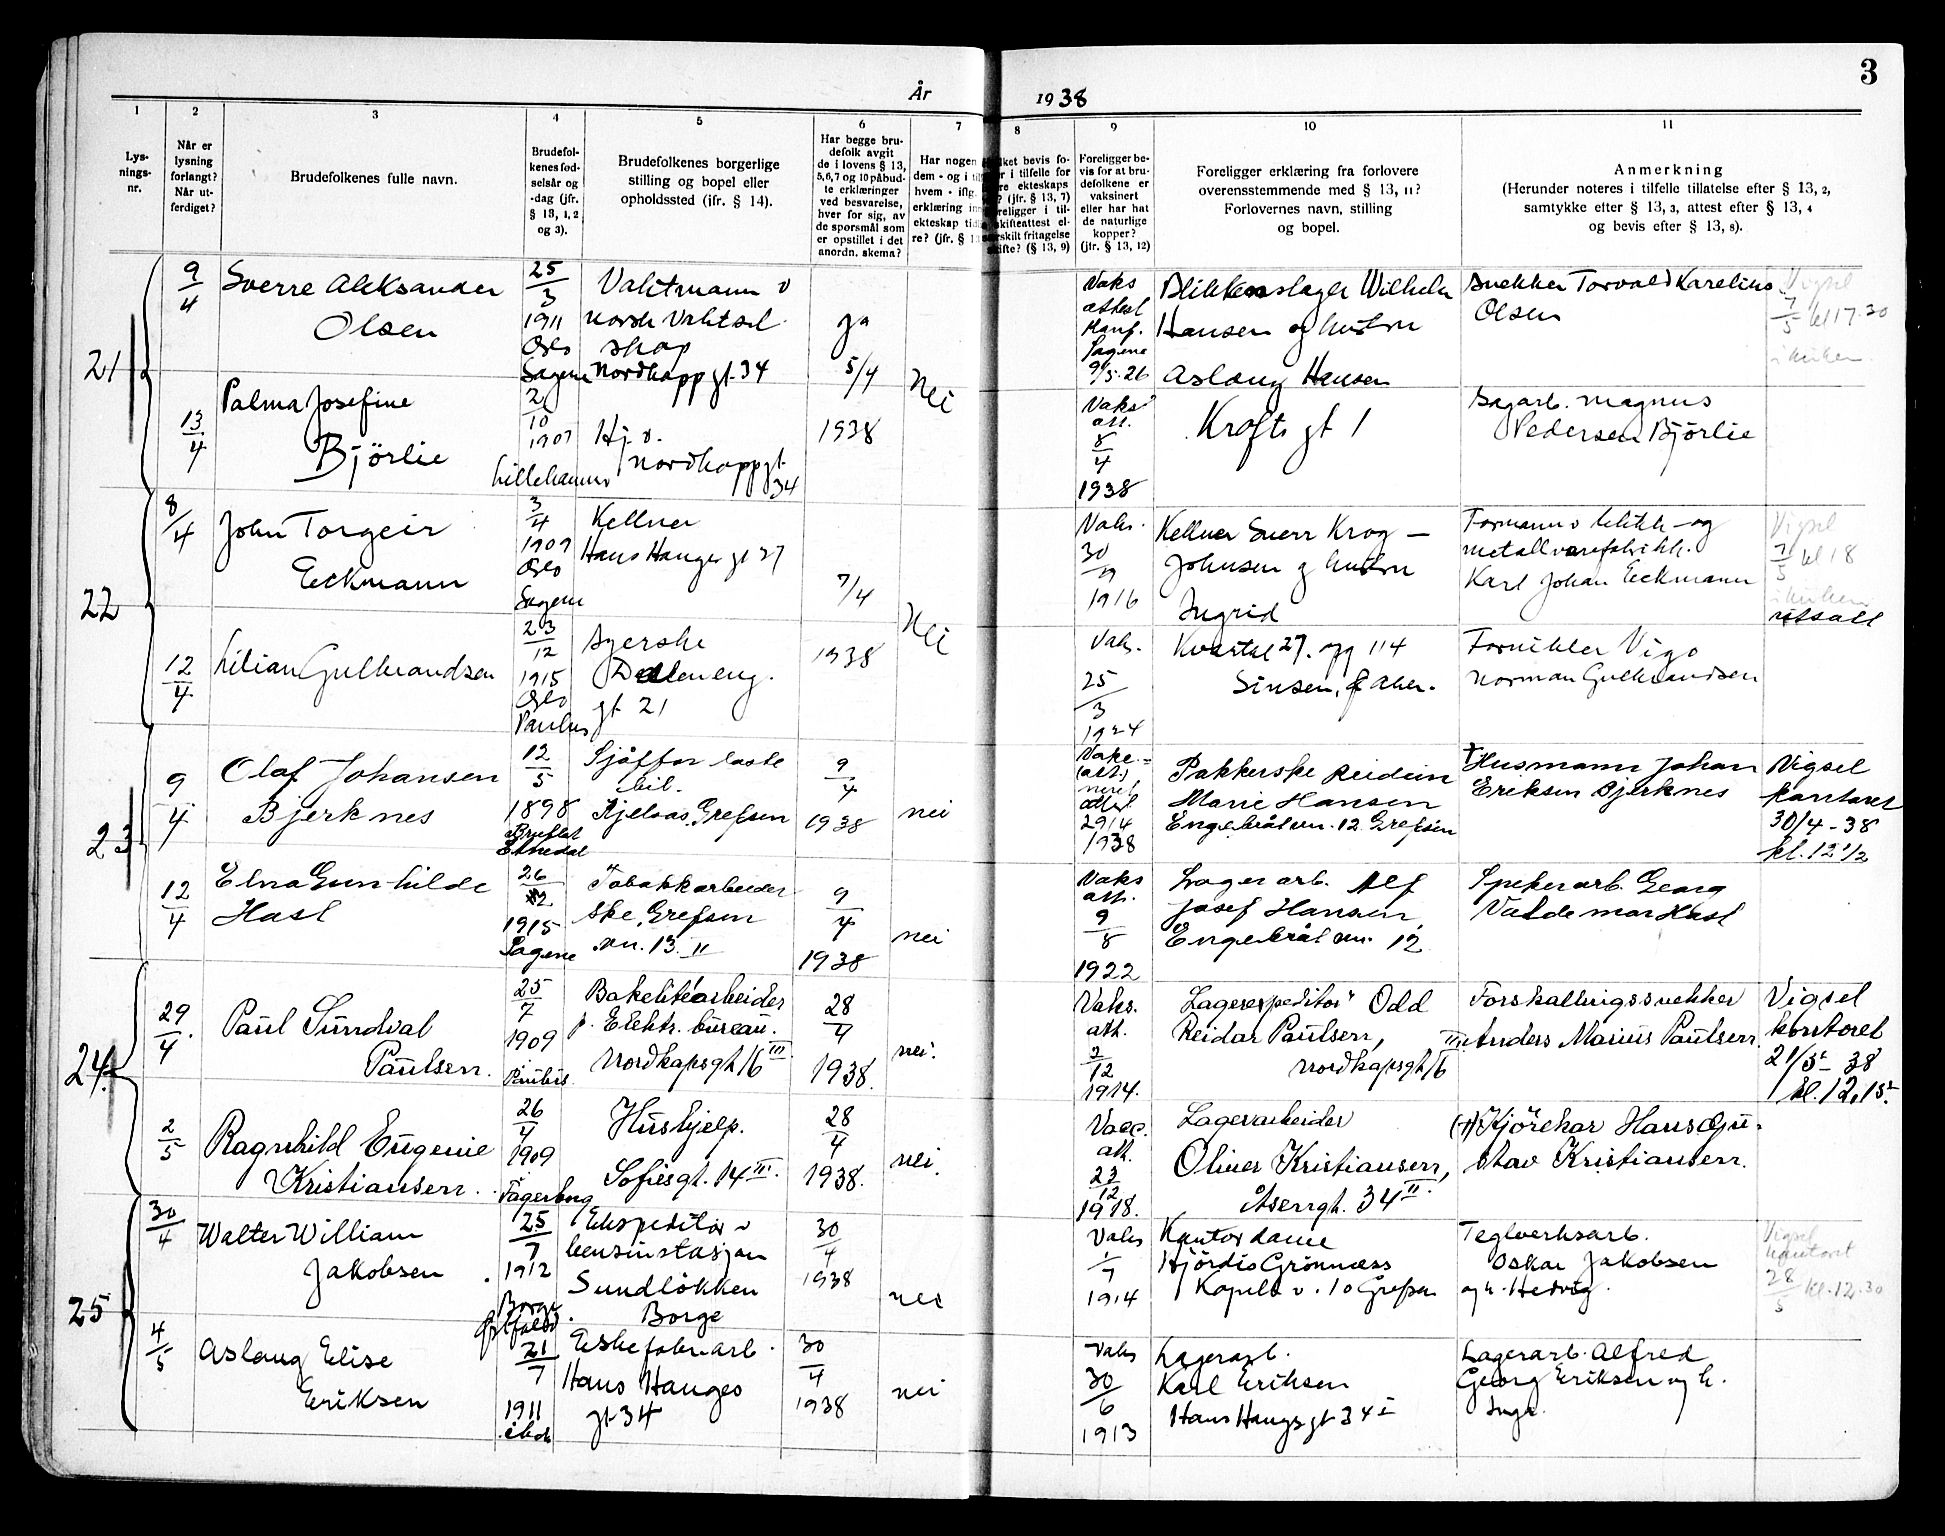 3
År 1938
1
2
3
4
5
6
7
8
9
10
11
Lys-
nings-
nr.
Når er
lysning
forlangt?
Når ut-
ferdiget?
Brudefolkenes fulle navn.
Brudefol-
kenes fød-
selsår og
-dag (jfr.
§ 13, 1, 2
og 3).
Brudefolkenes borgerlige
stilling og bopel eller
opholdssted (ifr. § 14).
Har begge bru-
defolk avgit
de i lovens § 13,
5, 6, 7 og 10 påbud-
te erklæringer
ved besvarelse,
hver for sig, av
de spørsmål som
er opstillet i det
anordn. skema?
Har nogen
dem - og i
hvem - iflg.
erklæring
ekteskap
re? (jfr. §
Foreligger be-
vis for at bru-
defolkene er
vaksinert
eller har hat
de naturlige
kopper?
(jfr. § 13, 12)
Foreligger erklæring fra forlovere
overensstemmende med § 13, 11?
Forlovernes navn, stilling
og bopel.
Anmerkning
(Herunder noteres i tilfelle tillatelse efter § 13, 2,
samtykke efter § 13, 3, attest efter § 13, 4
og bevis efter § 13, 8).
21
9/4
Sverre Aleksander
Olsen
25/3
1911
Oslo
Sagene
Vaktmann v
norsk Vaktsel
skap
Nordkapp gt. 34
ja
5/4
1938
nei
Vaks
attest
Sagene
9/5-26
Blikkenslager Wilhelm
Hansen og hustru
Aslaug Hansen
Krafts gt 1
Snekker Torvald Karelius
Olsen
Vigsel
7/5 kl 17.30
i kirken
13/4
Palma Josefine
Bjørlie
2/10
1907
Lillehammer
Hj. v.
Nordkapp gt.
34
Vaks
att.
8/4
1938
Sagarb. Magnus
Pedersen Bjørlie
22
8/4
John Torgeir
Eeckmann
3/4
1909
Oslo
Sagene
Kellner
Hans Hauges gt 27
7/4
1938
nei
Vaks.
30/9
1916
Kellner Sverr Krog-
Johnsen og hustru
Ingrid
Kvartal 27. opg 114
Sinsen, Aker.
Formann v blikk- og
metallvarefabrikk.
Karl Johan Eeckmann
Vigsel
7/5 kl 18
i kirken
utsatt
12/4
Lilian Gulbrandsen
23/12
1915
Oslo
Paulus
Syerske
Dæleneng.
gt 21
Vaks.
25/3
1924
Fornikler Vigo
Norman Gulbrandsen
23
9/4
Olaf Johansen
Bjerknes
12/5
1898
Bruflat
Etnedal
Sjåffør laste
bil.
Kjelsås, Grefsen
9/4
1938
nei
Vaks.-
(att.)
29/4
1938
Pakkerske Reidun
Marie Hansen
Engebråtvn. 12 Grefsen
Husmann Johan
Eriksen Bjerknes
Vigsel
kontoret
30/4-38
kl. 12 1/2
12/4
Elna Gunhilde
Hasl
26/12
1915
Sagene
Tobakkarbeider-
ske, Grefsen
vn. 13 II
9/4
1938
nei
Vaks
att.
9/8
1922
Lagerarb. Alf
Josef Hansen,
Engebråtvn. 12
Spikerarb. Georg
Valdemar Hasl
24.
29/4.
Paul Sundval
Paulsen.
25/7
1909
Paulus
Bakelitearbeider
p. Elektr. bureau.
Nordkapsgt. 16 III
28/4
1938.
nei.
Vaks.
att.
2/12
1914.
Lagerexpeditør Odd
Reidar Paulsen,
Nordkapsgt. 16 III
Forskallingssnekker
Anders Marius Paulsen.
Vigsel
kontoret
21/5-38
kl. 12.15.
2/5
Ragnhild Eugenie
Kristiansen.
26/4
1909
Fagerborg
Hushjelp.
Sofiesgt. 14 III.
28/4
1938.
nei.
Vacc.
att.
23/12
1918.
Lagerarbeider
Oliver Kristiansen,
Åsengt. 34 II.
(†) Kjørekar Hans Gu-
stav Kristiansen.
25
30/4
Walter William
Jakobsen
25/7
1912
Borge
Østfold
Ekspeditør v
bensinstasjon
Sundløkken
Borge
30/4
1938
nei
Vaks
1/7
1914
Kontordame
Hjørdis Grønnæss
Kapellv. 10 Grefsen
Teglverksarb.
Oskar Jakobsen
og h. Hedvig.
Vigsel
kontoret
28/5 kl. 12.30
4/5
Aslaug Elise
Eriksen
21/7
1911
Eskefabr.arb.
Hans Hauges
gt 34
30/4
1938
nei
Vaks
30/6
1913
Lagerarb.
Karl Eriksen
Hans Haugs gt 34 I
Lagerarb. Alfred
Georg Eriksen og h.
Inga.